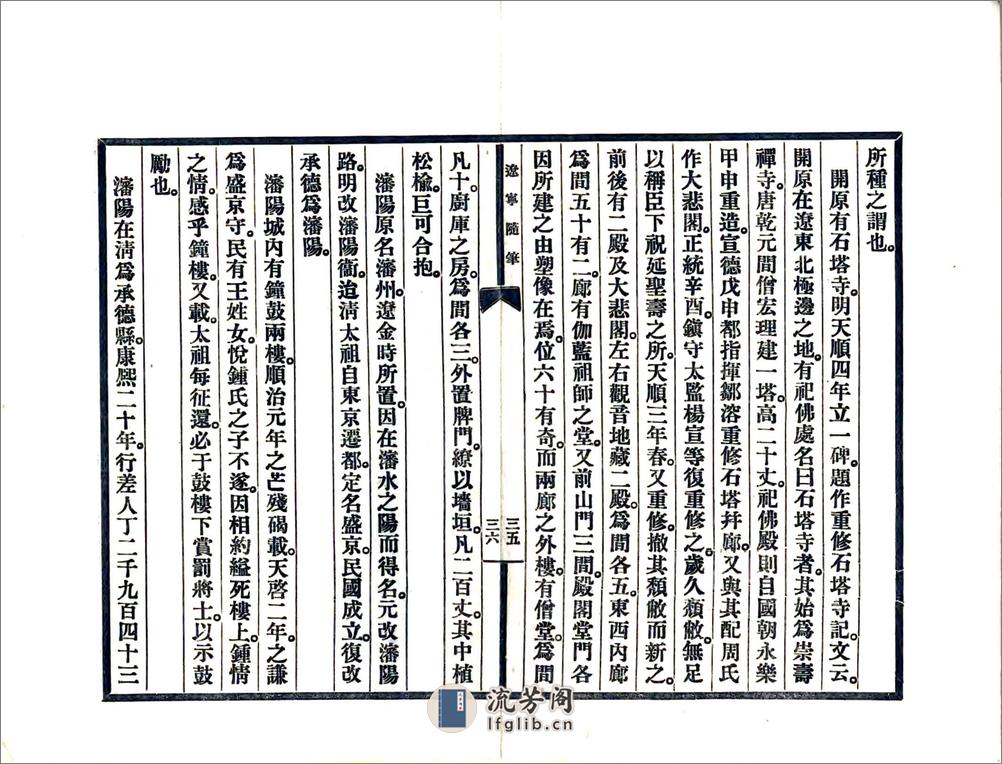 所種之謂也。
開原有石塔寺。明天順四年立一碑。題作重修石塔寺記。文云。
開原在遼東北極邊之地。有祀佛處名曰石塔寺者。其始爲崇壽
禪寺。唐乾元間僧宏理建一塔。高二十丈。祀佛殿則自國朝永樂
甲申重造。宣德戊申都指揮鄒溶重修石塔幷廊。又與其配周氏
作大悲閣。正統辛酉。鎭守太監楊宣等復重修之。歲久頹敝。無足
以稱臣下祝延聖壽之所。天順三年春。又重修。撤其頹敝而新之。
前後有二殿及大悲閣。左右觀音地藏二殿。爲間各五。東西內廊
爲間五十有二。廊有伽藍祖師之堂。又前山門三間。殿閣堂門各
因所建之由塑像在焉。位六十有奇。而兩廊之外樓。有僧堂。爲間
遼寧隨筆
三五
三六
凡十。廚庫之房。爲間各三。外置牌門。繚以墻垣。凡二百丈。其中植
松檢。巨可合抱。
瀋陽原名瀋州。遼金時所置。因在瀋水之陽而得名。元改瀋陽
路。明改瀋陽衞。迨淸太祖自東京遷都。定名盛京。民國成立。復改
承德爲瀋陽。
瀋陽城內有鐘鼓兩樓。順治元年之芒殘碣載。天啓二年。之謙
爲盛京守。民有王姓女。悅鍾氏之子不遂。因相約縊死樓上。鍾情
之情。感乎鐘樓。又載。太祖每征還。必于鼓樓下賞罰將士。以示鼓
勵也。
瀋陽在淸爲承德縣。康熙二十年。行差人丁二千九百四十三
流芳阁
lfglib.cn